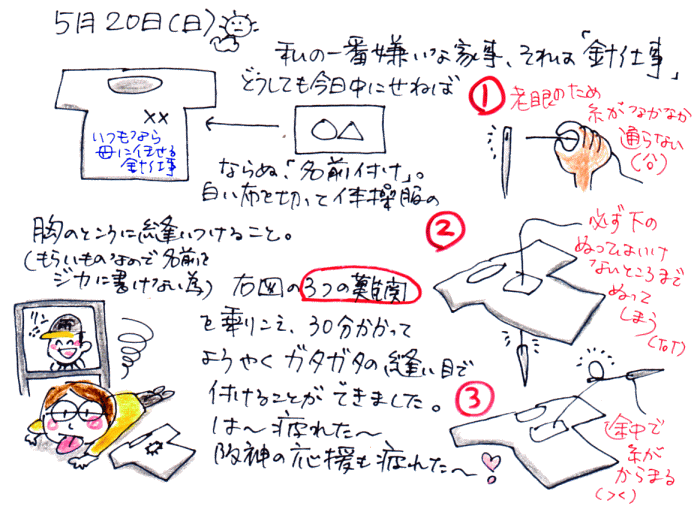 5月20日(日)
私の一番嫌いな家事、それは「針仕事」
どうしても今日中にせねば
××
いつもなら
母に任せる
針仕事
○△
ならぬ、「名前付け」。
白い布を切って体操服の
胸のところに縫いつけること。
(もらいものなので名前を
ジカに書けない為)
右図の3つの難関
を乗りこえ、30分かかって
ようやくガタガタの縫い目で
付けることができました。
は〜疲れた〜
阪神の応援も疲れた〜
①老眼のため
糸がなかなか
通らない
②必ず下の
ぬってはいけ
ないところまで
ぬって
しまう
③途中で
糸が
からまる
(><)